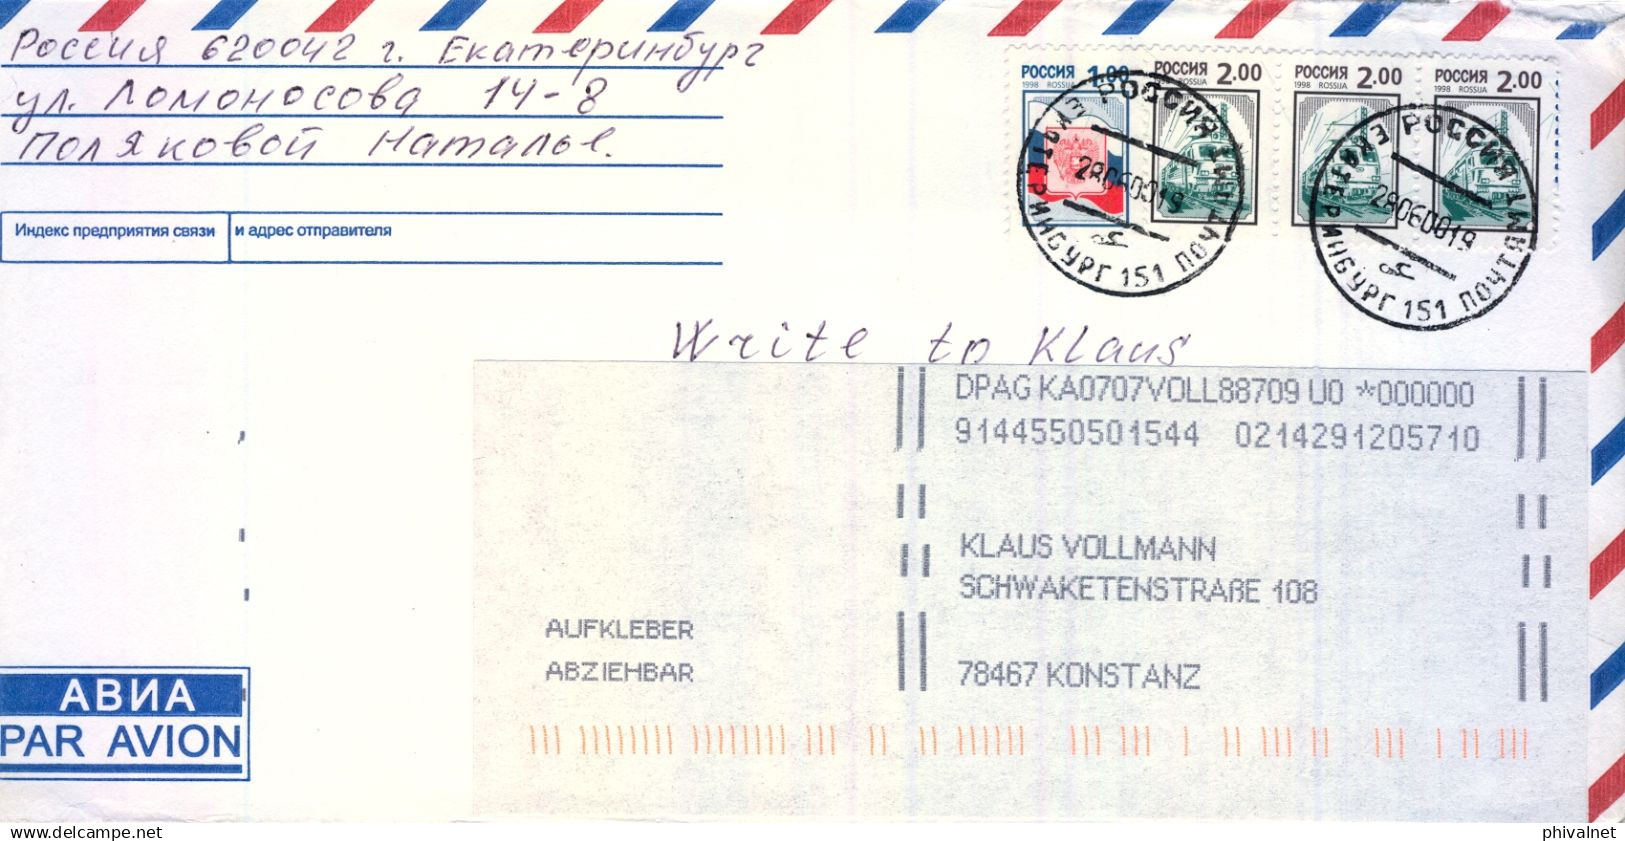 Россия 620042 г. Екатеринбург
ул. Ломоносова 14-8
Поляковой Наталье.
Индекс предприятия связи и адрес отправителя
РОССИЯ 1.00
1998 ROSSIJA
РОССИЯ 2.00
1998 ROSSIJA
РОССИЯ 2.00
1998 ROSSIJA
РОССИЯ 2.00
1998 ROSSIJA
РОССИЯ ПОЧТАМТ
ЕКАТЕРИНБУРГ 151
2806000019
РОССИЯ ПОЧТАМТ
ЕКАТЕРИНБУРГ 151
2806000019
Write to Klaus
DPAG KA0707VOLL88709 U0 *000000
9144550501544 0214291205710
KLAUS VOLLMANN
SCHWAKETENSTRAßE 108
AUFKLEBER
ABZIEHBAR
78467 KONSTANZ
АВИА
PAR AVION
phivalnet